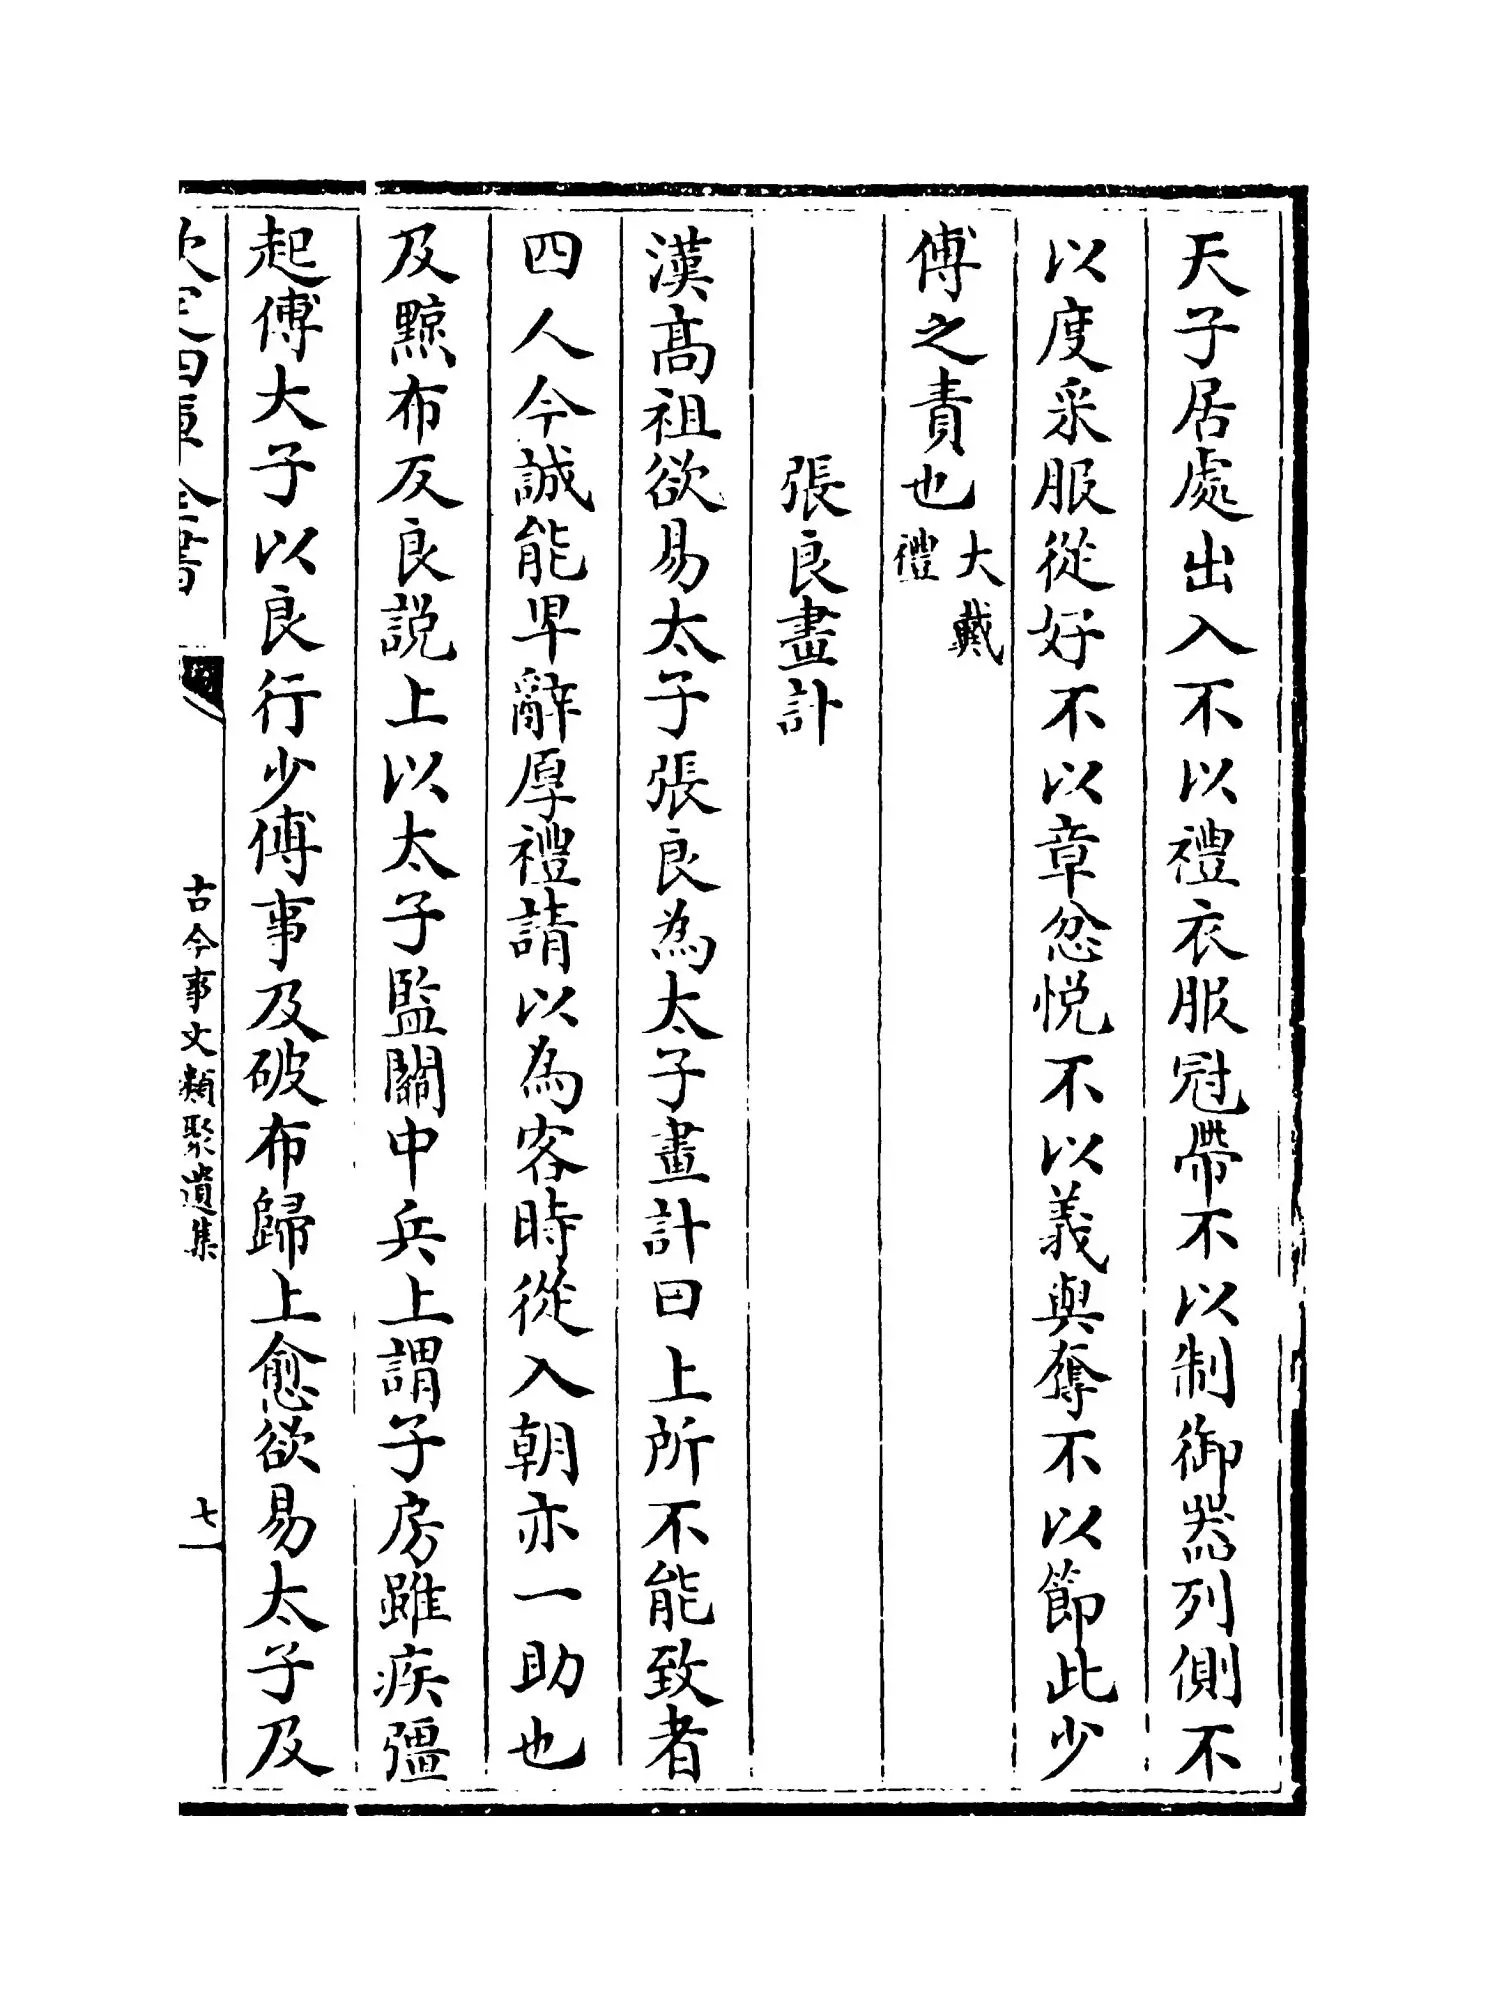 天子居處出入不以禮衣服冠帶不以制御器列側不
以度采服從好不以章忿悅不以義與奪不以節此少
傅之責也大戴禮
張良畫計
漢高祖欲易太子張良為太子畫計曰上所不能致者
四人今誠能卑辭厚禮請以為客時從入朝亦一助也
及黥布反良説上以太子監關中兵上謂子房雖疾彊
起傅大子以良行少傅事及破布歸上愈欲易太子及
欽定四庫全書
古今事文類聚遺集
七